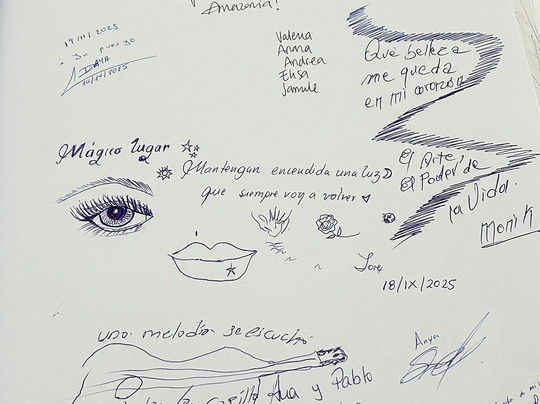 Amazonía!
19/11/2025
yo
Valeria
Anma
Andrea
Elisa
Jamile
Qué belleza
me queda
en mi corazón
Mágico lugar
Mantengan encendida una luz
que siempre voy a volver
El Arte,
El Poder de
la Vida.
Monik
18/IX/2025
una melodía se escuchó
Anya
capilla Ana y Pablo